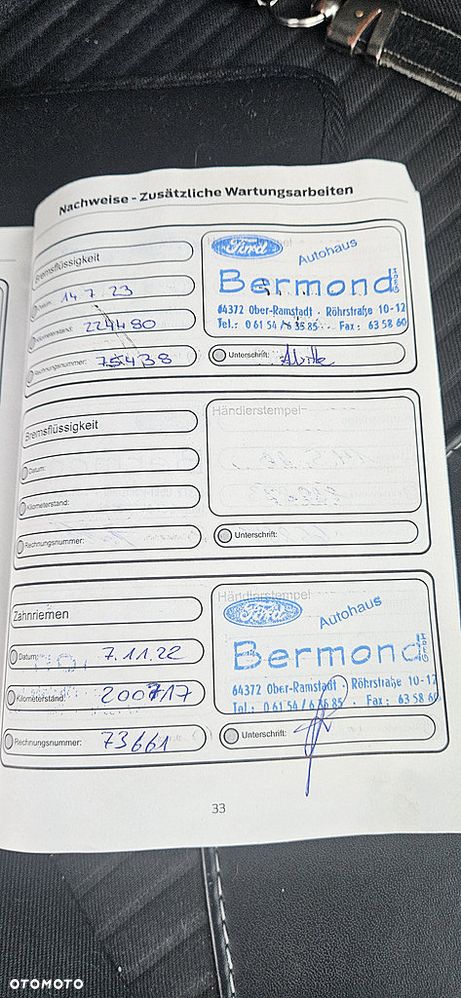 Nachweise - Zusätzliche Wartungsarbeiten
Bremsflüssigkeit
Datum: 14.7.23
Kilometerstand: 224480
Rechnungsnummer: 75438
Händlerstempel
Ford
Autohaus
Bermond
64372 Ober-Ramstadt · Röhrstraße 10-12
Tel.: 0 61 54 / 6 35 85 · Fax: 63 58 60
Unterschrift:
Bremsflüssigkeit
Datum:
Kilometerstand:
Rechnungsnummer:
Händlerstempel
Unterschrift:
Zahnriemen
Datum: 7.11.22
Kilometerstand: 200717
Rechnungsnummer: 73661
Händlerstempel
Ford
Autohaus
Bermond
64372 Ober-Ramstadt · Röhrstraße 10-12
Tel.: 0 61 54 / 6 35 85 · Fax: 63 58 60
Unterschrift:
33
OTOMOTO